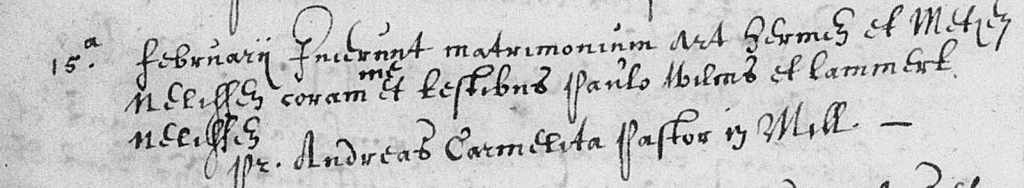 15.a februarij Inierunt matrimonium Art Hermens et Metjen
Nelissen coram me et testibus Paulo Wilms et lammert
Nelissen
Pr. Andreas Carmelita Pastor in Mill. —